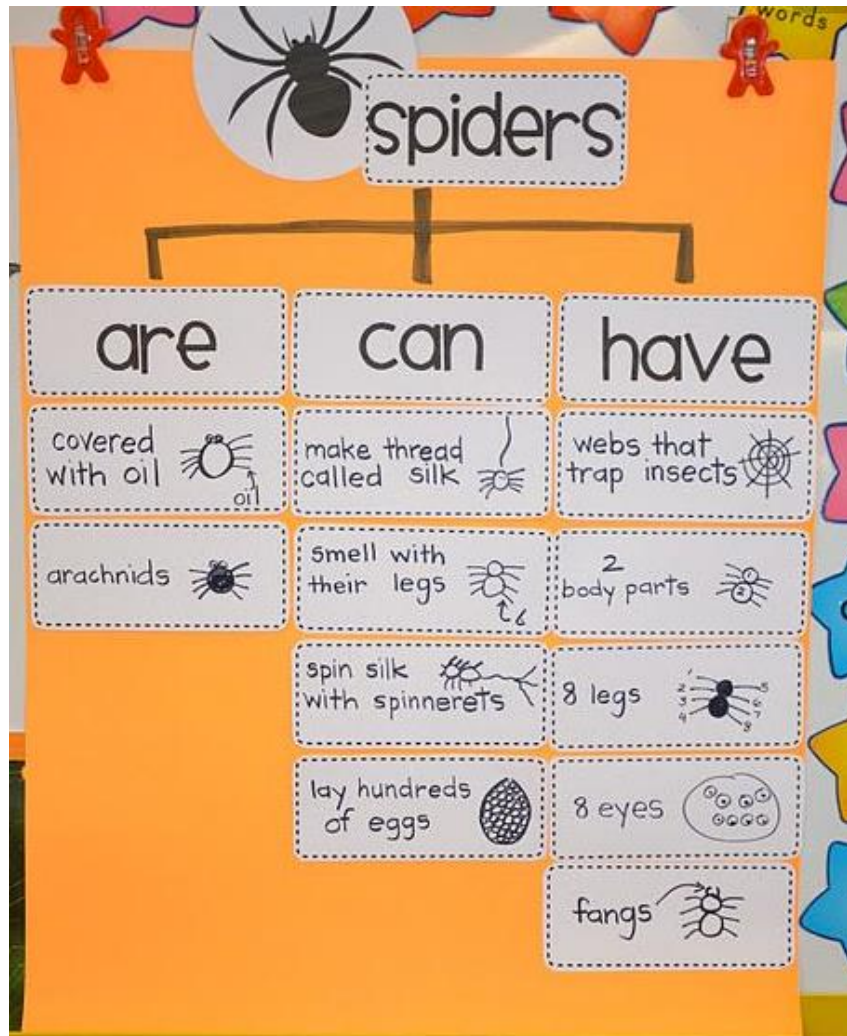 words
spiders
are
can
have
covered
with oil
oil
arachnids
make thread
called silk
smell with
their legs
6
spin silk
with spinnerets
lay hundreds
of eggs
webs that
trap insects
2
body parts
1
2
8 legs
1
2
3
4
5
6
7
8
8 eyes
fangs